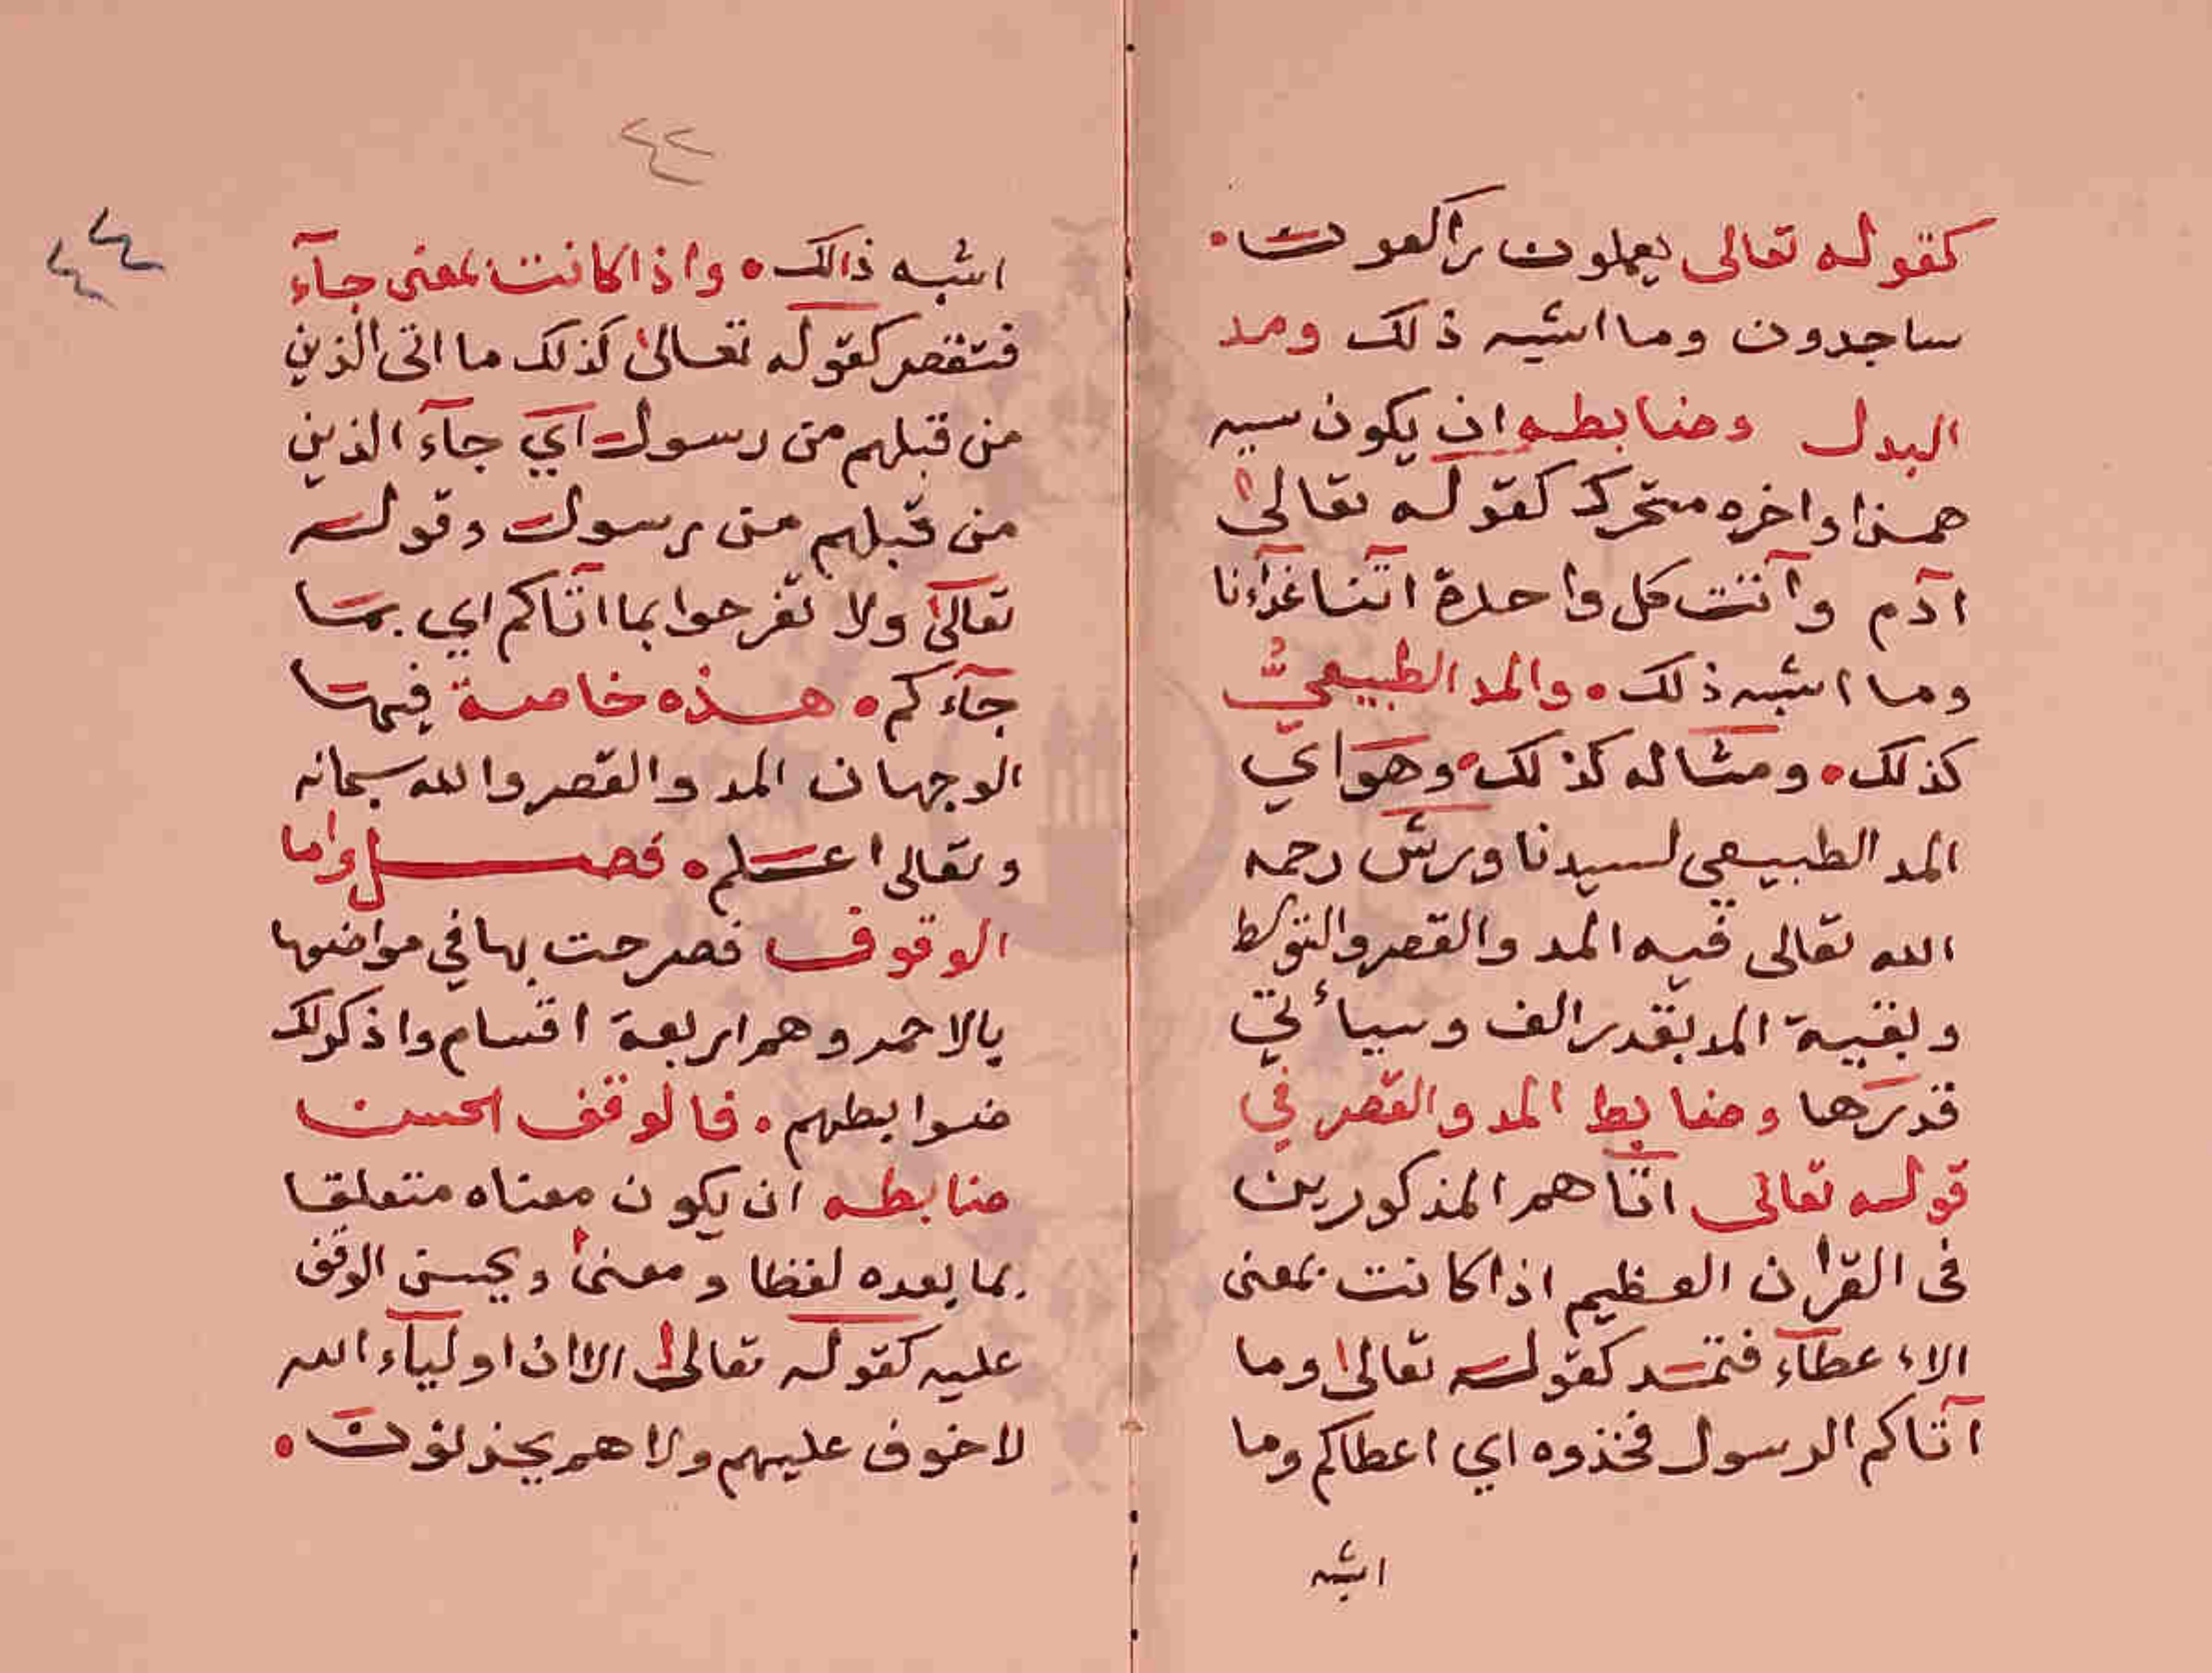 كقوله تعالى يعملون راكعون
ساجدون وما اشبه ذلك ومد
البدل وضابطه ان يكون سببه
همزا واخره متحرك كقوله تعالى
آدم وآتت كل واحدة اتنا غدآءنا
وما اشبه ذلك • والمد الطبيعي
كذلك • ومثاله كذلك • وهو اي
المد الطبيعي لسيدنا ورش رحمه
الله تعالى فيه المد والقصر والتوسط
وبقية المد بقدر الف وسيأتي
قدرها وضابط المد والقصر في
قوله تعالى اتاهم المذكورين
في القرآن العظيم اذا كانت بمعنى
الاعطآء فتمد كقوله تعالى وما
آتاكم الرسول فخذوه اي اعطاكم وما
اشبه
٤٢
٤٤
اشبه ذالك • واذا كانت بمعنى جآء
فتقصر كقوله تعالى كذلك ما اتى الذين
من قبلهم من رسول اي جآء الذين
من قبلهم من رسول وقوله
تعالى ولا تفرحوا بما اتاكم اي بما
جآءكم • هذه خاصة فيها
الوجهان المد والقصر والله سبحانه
وتعالى اعلم • فصل واما
الوقوف فصرحت بها في مواضعها
بالاحمر وهم اربعة اقسام واذكر لك
ضوابطهم • فالوقف الحسن
ضابطه ان يكون معناه متعلقا
بما بعده لفظا ومعنى ويحسن الوقف
عليه كقوله تعالى الا ان اوليآء الله
لا خوف عليهم ولا هم يحزنون •